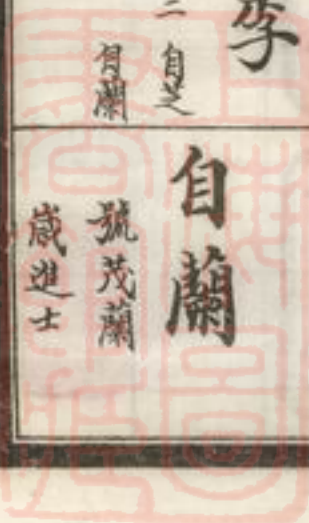 李
二 自芝
自蘭
自蘭
號茂蘭
歲進士